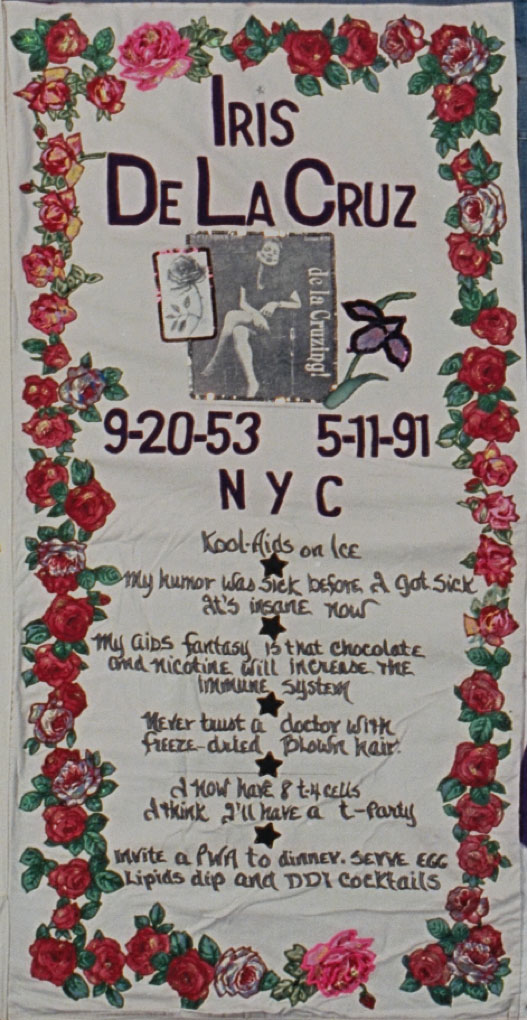 IRIS
DE LA CRUZ
de la Cruzing!
9-20-53 5-11-91
NYC
Kool-Aids on Ice
My humor was sick before I got sick
It's insane now
My aids fantasy is that chocolate
and nicotine will increase the
immune system
Never trust a doctor with
freeze-dried blown hair.
I now have 8 t-4 cells
I think I'll have a t-party
invite a PWA to dinner. SERVE EGG
Lipids dip and DDI cocktails